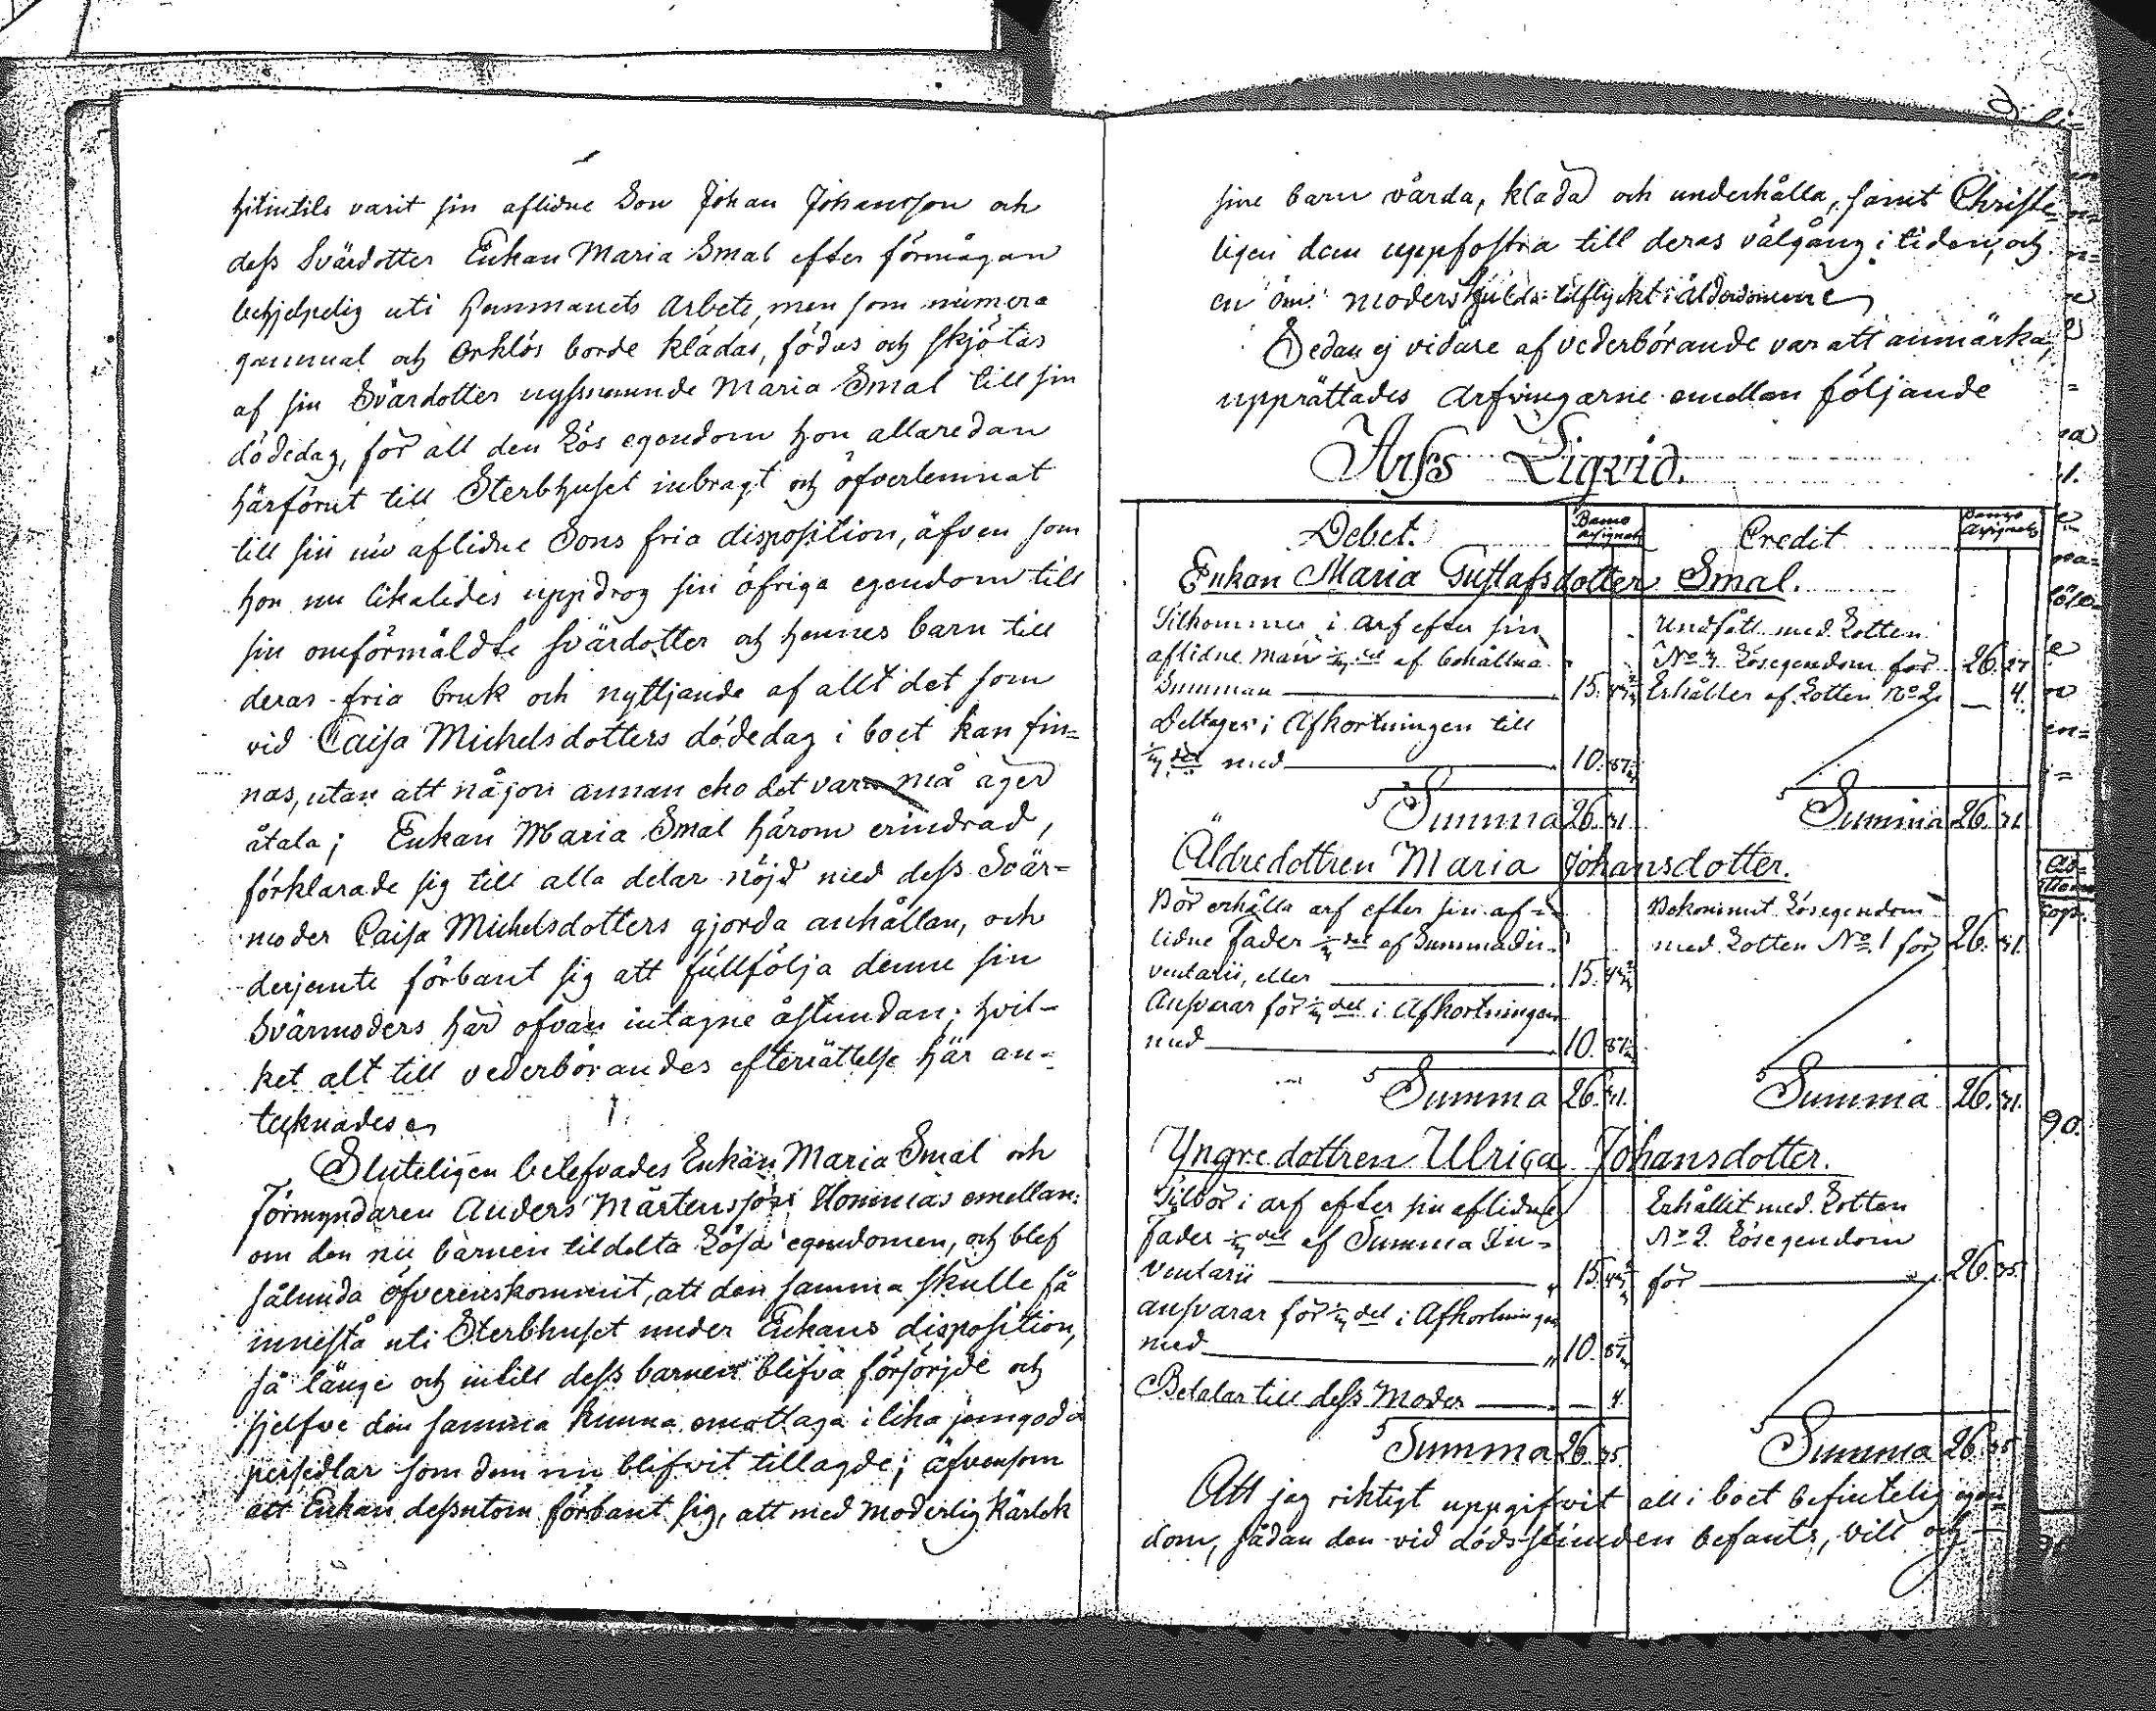 hitintils varit sin aflidne Son Johan Johansson och
dess Svärdotter Enkan Maria Smal efter förmågan
behjelpelig uti hemmanets Arbete, men som numera
gammal och Orklös borde klädas, födas och skjötas
af sin Svärdotter nyssnämnde Maria Smal till sin
dödedag, för all den Lös egendom hon allaredan
härförut till Sterbhuset inbragt och öfverlemnat
till sin nu aflidne Sons fria disposition, äfven som
hon nu likaledes uppdrog sin öfriga egendom till
sin omförmäldte svärdotter och hennes barn till
deras fria bruk och nyttjande af allt det som
vid Caisa Michelsdotters dödedag i boet kan fin=
nas, utan att någon annan eho det vara må äger
åtala; Enkan Maria Smal härom erindrad,
förklarade sig till alla delar nöjd med dess Svär=
moder Caisa Michelsdotters gjorda anhållan, och
derjemte förbant sig att fullfölja denne sin
Svärmoders här ofvan intagne åstundan; hvil-
ket alt till vederbörandes efterrättelse här an=
tecknades
Sluteligen belefvades Enkan Maria Smal och
Förmyndaren Anders Mårtensson Honnias emellan:
om den nu barnen tildelta Lösa egendomen, och blef
sålunda öfverenskommit, att den samma skulle få
innestå uti Sterbhuset under Enkans disposition,
så länge och intill dess barnen blifva försörjde och
sjelfve den samma kunna emottaga i lika jemgoda
persedlar som dem nu blifvit tillagde; äfvensom
att Enkan dessutom förbant sig, att med moderlig kärlek
sine barn vårda, kläda och underhålla, samt Christe=
ligen dem uppfostra till deras välgång i tiden, och
en öm moders hulda tilflykt i ålderdomme
Sedan ej vidare af vederbörande var att anmärka,
upprättades Arfvingarne emellan följande
Arfs Liqvid.
Debet. Banco Assignat: Credit Banco Assignat:
Enkan Maria Gustafsdotter Smal.
Tilkommer i arf efter sin
aflidne man del af behållna
Summan 15.
Deltager i Afkortningen till
del med 10.
Summa 26. 31.
Undfått med Lotten
No 3 Lösegendom för 26. 27
Erhåller af Lotten No 2. — 4.
Summa 26. 31.
Äldre dottren Maria Johansdotter.
Bör erhålla arf efter sin af=
lidne fader del af Summa In=
ventarii, eller 15.
Ansvarar för del i Afkortningen
med 10.
Summa 26. 31.
Bekommit Lösegendom
med Lotten No 1 för 26. 31.
Summa 26. 31.
Yngre dottren Ulrica Johansdotter.
Tilbör i arf efter sin aflidne
Fader del af Summa In=
ventarii 15.
ansvarar för del i Afkortningen
med 10.
Betalar till dess Moder — 4.
Summa 26. 35.
Erhållit med Lotten
No 2. Lösegendom
för 26. 35.
Summa 26. 35
Att jag riktigt uppgifvit all i boet befintelig egen=
dom, sådan den vid dödsstunden befants, vill och